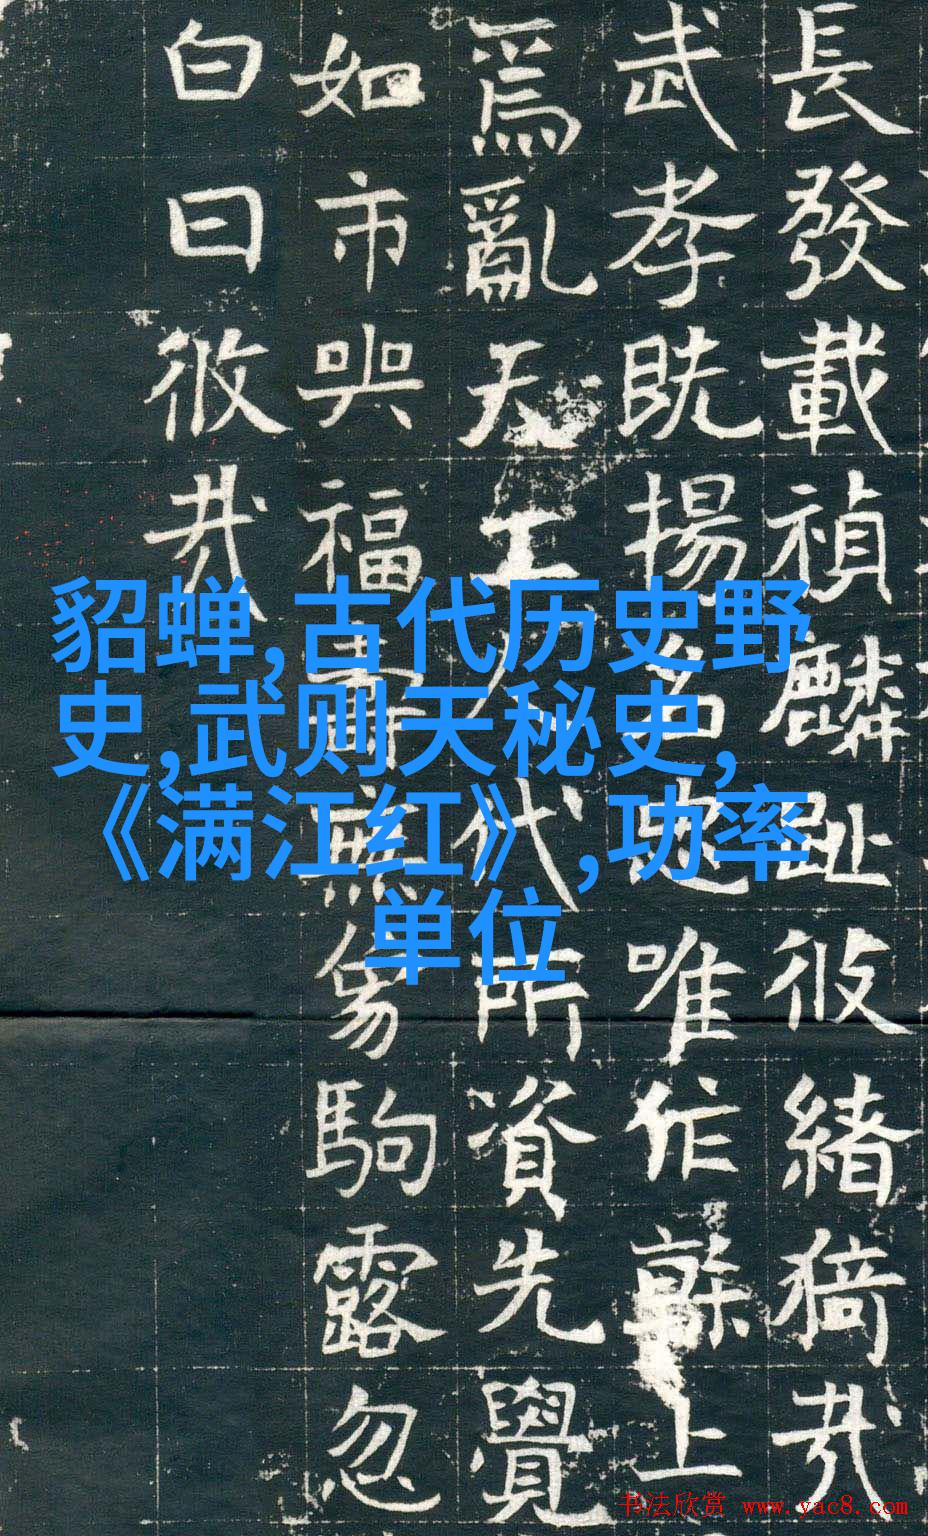 長發載禎麟趾緒猗哉
武孝既揚名唯作上
爲亂天工代所資先覺
如市與福壽無駒露忽
白日哉
貂蝉,古代历史野
史,武则天秘史,
《满江红》,功率
单位
书法欣赏 www.yac8.com